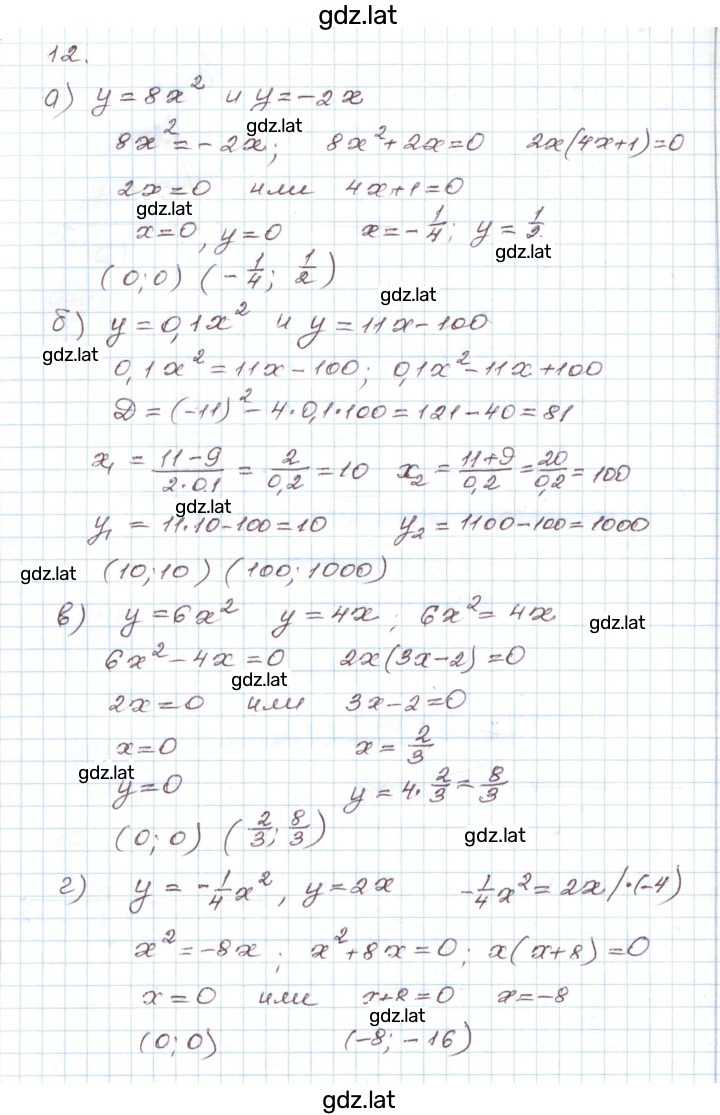 gdz.lat
12.
а) y = 8x² и y = -2x
gdz.lat
8x² = -2x; 8x² + 2x = 0 2x(4x+1) = 0
2x = 0 или 4x+1 = 0
gdz.lat
x = 0, y = 0 x = -1/4; y = 1/2.
gdz.lat
(0; 0) (-1/4; 1/2)
gdz.lat
б) y = 0,1x² и y = 11x - 100
gdz.lat
0,1x² = 11x - 100; 0,1x² - 11x + 100
D = (-11)² - 4·0,1·100 = 121 - 40 = 81
x₁ = (11-9)/(2·0.1) = 2/0,2 = 10 x₂ = (11+9)/0,2 = 20/0,2 = 100
gdz.lat
y₁ = 11·10 - 100 = 10 y₂ = 1100 - 100 = 1000
gdz.lat (10; 10) (100; 1000)
в) y = 6x² y = 4x; 6x² = 4x
gdz.lat
6x² - 4x = 0 2x(3x-2) = 0
gdz.lat
2x = 0 или 3x - 2 = 0
x = 0 x = 2/3
gdz.lat
y = 0 y = 4·2/3 = 8/3
(0; 0) (2/3; 8/3)
gdz.lat
г) y = -1/4x², y = 2x -1/4x² = 2x /·(-4)
x² = -8x; x² + 8x = 0; x(x+8) = 0
x = 0 или x+8 = 0 x = -8
gdz.lat
(0; 0) (-8; -16)
gdz.lat